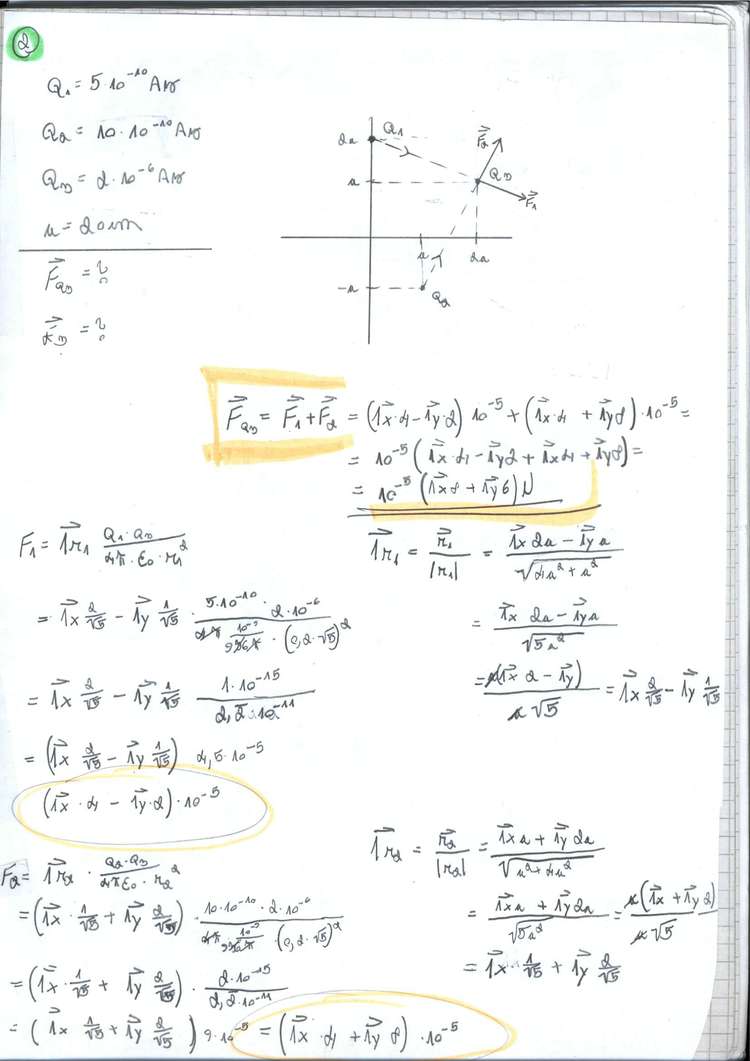 2
Q₁ = 5·10⁻¹⁰ As
Q₂ = 10·10⁻¹⁰ As
Q₃ = 2·10⁻⁶ As
a = 20cm
F⃗Q₃ = ?
= ?
2a Q₁ F⃗₂
a Q₃
F⃗₁
a 2a
-a Q₂
F⃗Q₃ = F⃗₁ + F⃗₂ = (1⃗x·4 - 1⃗y·2) 10⁻⁵ + (1⃗x·4 + 1⃗y 8)·10⁻⁵ =
= 10⁻⁵ (1⃗x·4 - 1⃗y2 + 1⃗x4 + 1⃗y8) =
= 10⁻⁵ (1⃗x8 + 1⃗y6) N
F₁ = 1⃗r₁ Q₁·Q₃ / 4π·ε₀·r₁²
= 1⃗x 2/√5 - 1⃗y 1/√5 · 5·10⁻¹⁰·2·10⁻⁶ / 4π 10⁻⁹/36π · (0,2·√5)²
= 1⃗x 2/√5 - 1⃗y 1/√5 1·10⁻¹⁵ / 2,2·10⁻¹¹
= (1⃗x 2/√5 - 1⃗y 1/√5) 4,5·10⁻⁵
(1⃗x·4 - 1⃗y·2)·10⁻⁵
1⃗r₁ = r⃗₁/|r₁| = 1⃗x 2a - 1⃗y a / √4a² + a²
= 1⃗x 2a - 1⃗y a / √5a²
= a(1⃗x 2 - 1⃗y) / a√5 = 1⃗x 2/√5 - 1⃗y 1/√5
F₂ = 1⃗r₂ · Q₂·Q₃ / 4πε₀·r₂²
= (1⃗x·1/√5 + 1⃗y 2/√5) · 10·10⁻¹⁰·2·10⁻⁶ / 4π 10⁻⁹/36π · (0,2·√5)²
= (1⃗x·1/√5 + 1⃗y 2/√5) · 2·10⁻¹⁵ / 2,2·10⁻¹¹
= (1⃗x 1/√5 + 1⃗y 2/√5) 9·10⁻⁵ = (1⃗x·4 + 1⃗y 8)·10⁻⁵
1⃗r₂ = r⃗₂/|r₂| = 1⃗x a + 1⃗y 2a / √a² + 4a²
= 1⃗x a + 1⃗y 2a / √5a² = a(1⃗x + 1⃗y 2) / a√5
= 1⃗x·1/√5 + 1⃗y 2/√5